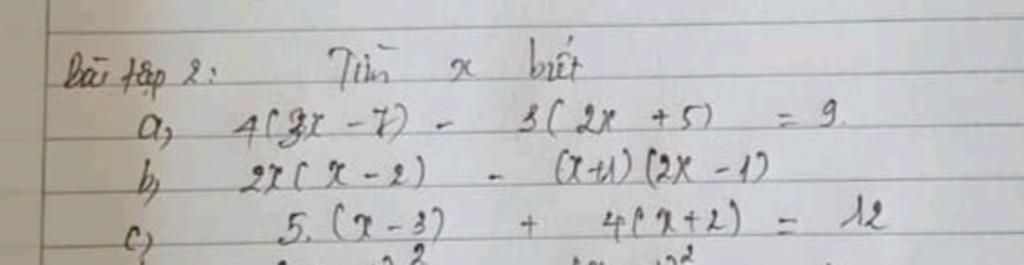 Bài tập 2: Tìm x biết
a, 4(3x - 7) - 3(2x + 5) = 9.
b, 2x(x - 2) - (x+1)(2x - 1)
c, 5.(x - 3) + 4(x + 2) = 12